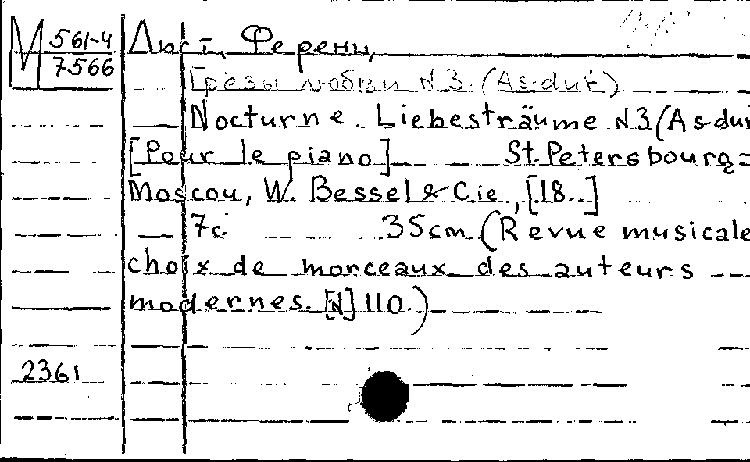 М 561-4
7566
Лист, Ференц,
Грезы любви №3. (As-dur)
Nocturne. Liebesträume №3 (As-dur
[Pour le piano] St. Petersbourg=
Moscou, W. Bessel & Cie, [18..]
7с. 35cm (Revue musicale
choix de morceaux des auteurs
modernes. [№] 110.)
2361